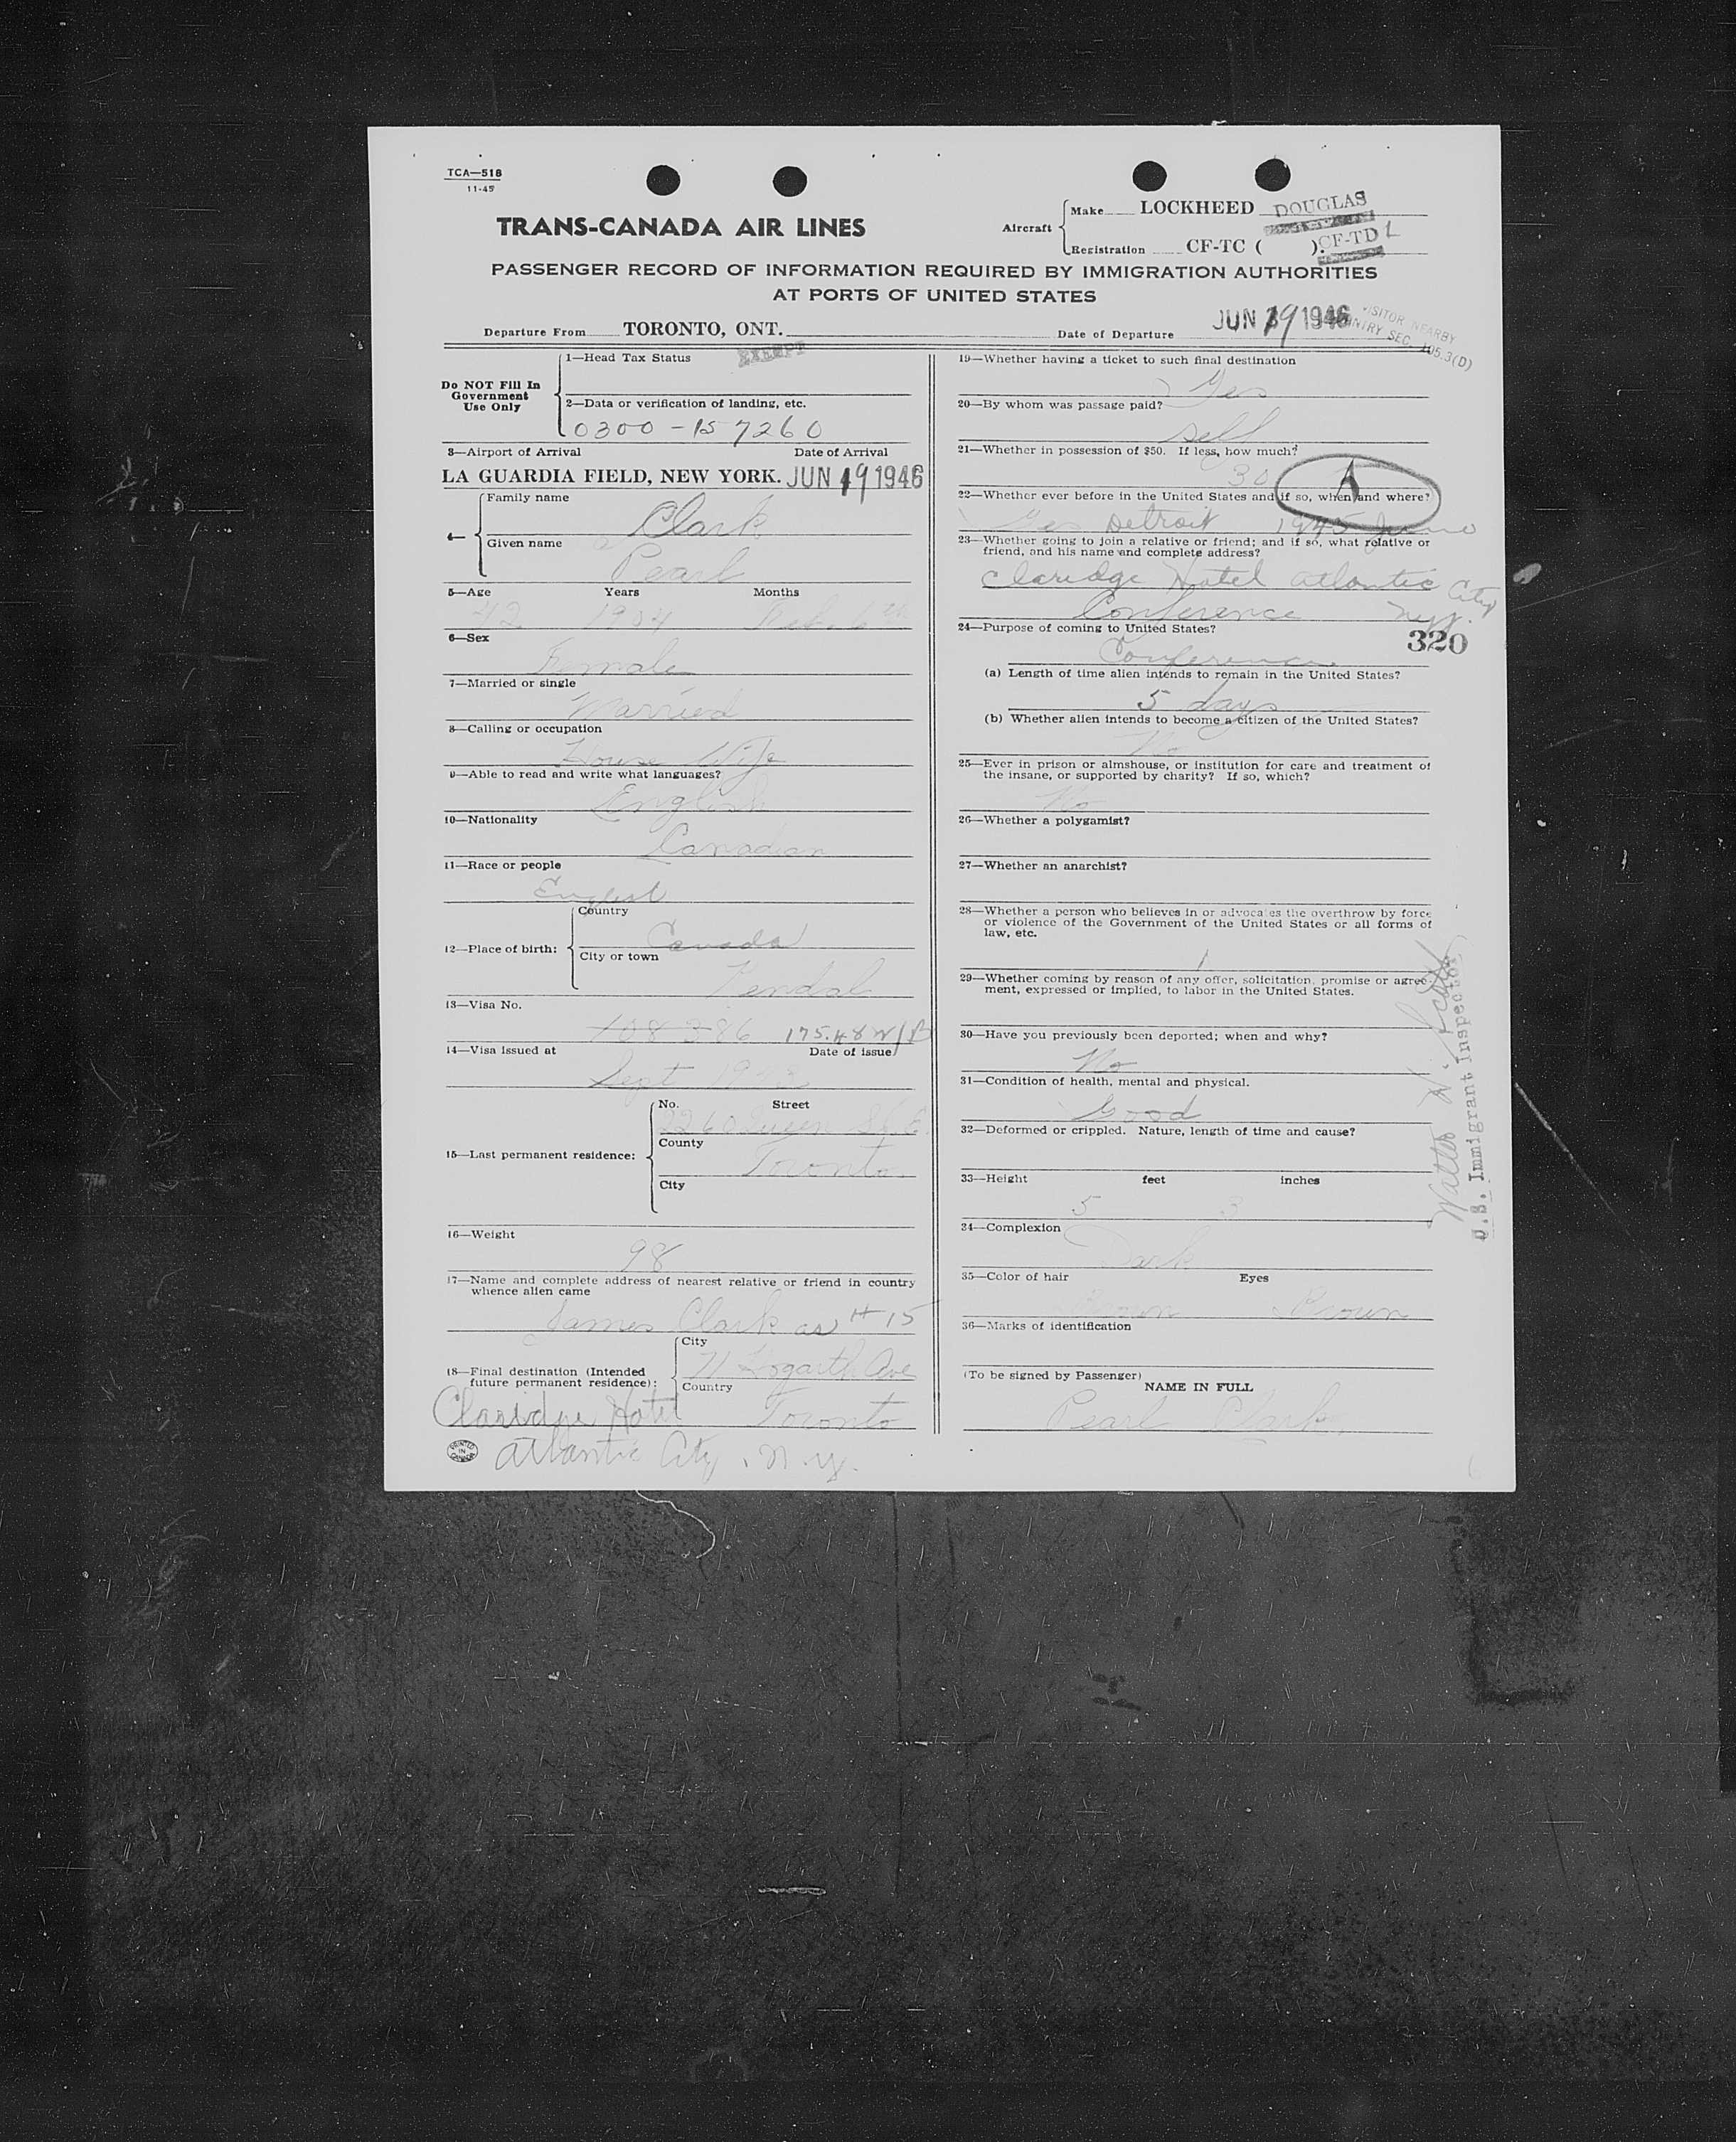 TCA—518
11-45
TRANS-CANADA AIR LINES
Aircraft
Make LOCKHEED DOUGLAS
Registration CF-TC ( ). CF-TD L
PASSENGER RECORD OF INFORMATION REQUIRED BY IMMIGRATION AUTHORITIES
AT PORTS OF UNITED STATES
Departure From TORONTO, ONT. Date of Departure JUN 19 1946
VISITOR NEARBY
COUNTRY SEC. 105.3(D)
Do NOT Fill In
Government
Use Only
1—Head Tax Status EXEMPT
2—Data or verification of landing, etc.
0300-157260
3—Airport of Arrival Date of Arrival
LA GUARDIA FIELD, NEW YORK. JUN 19 1946
4—
Family name
Clark
Given name
Pearl
5—Age Years Months
42 1904 Feb. 6th
6—Sex
Female
7—Married or single
Married
8—Calling or occupation
House Wife
9—Able to read and write what languages?
English
10—Nationality
Canadian
11—Race or people
English
12—Place of birth:
Country
Canada
City or town
Kendal
13—Visa No.
108386 175.48
14—Visa issued at Date of issue
Sept
15—Last permanent residence:
No. Street
2260 Queen St. E.
County
Toronto
City
16—Weight
98
17—Name and complete address of nearest relative or friend in country
whence alien came
James Clark as #15
18—Final destination (Intended
future permanent residence):
City
71 Hogarth Ave
Country
Claridge Hotel Toronto
Atlantic City. N.Y.
PRINTED
IN
CANADA
19—Whether having a ticket to such final destination
Yes
20—By whom was passage paid?
Self
21—Whether in possession of $50. If less, how much?
30
A
22—Whether ever before in the United States and if so, when and where?
Yes Detroit 1945 June
23—Whether going to join a relative or friend; and if so, what relative or
friend, and his name and complete address?
Claridge Hotel Atlantic City
Conference
24—Purpose of coming to United States?
320
Conference
(a) Length of time alien intends to remain in the United States?
5 days
(b) Whether alien intends to become a citizen of the United States?
No
25—Ever in prison or almshouse, or institution for care and treatment of
the insane, or supported by charity? If so, which?
No
26—Whether a polygamist?
27—Whether an anarchist?
28—Whether a person who believes in or advocates the overthrow by force
or violence of the Government of the United States or all forms of
law, etc.
29—Whether coming by reason of any offer, solicitation, promise or agree-
ment, expressed or implied, to labor in the United States.
30—Have you previously been deported; when and why?
No
31—Condition of health, mental and physical.
Good
32—Deformed or crippled. Nature, length of time and cause?
33—Height feet inches
5 3
34—Complexion
Dark
35—Color of hair Eyes
Brown Brown
36—Marks of identification
(To be signed by Passenger)
NAME IN FULL
Pearl Clark
U.S. Immigrant Inspector